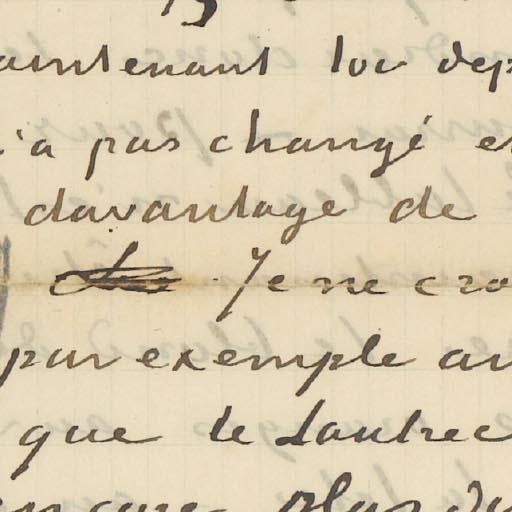 aintenant tou dep
'a pas changé e
davantage de
Je ne cro
par exemple au
que le Lautrec
encore plus d